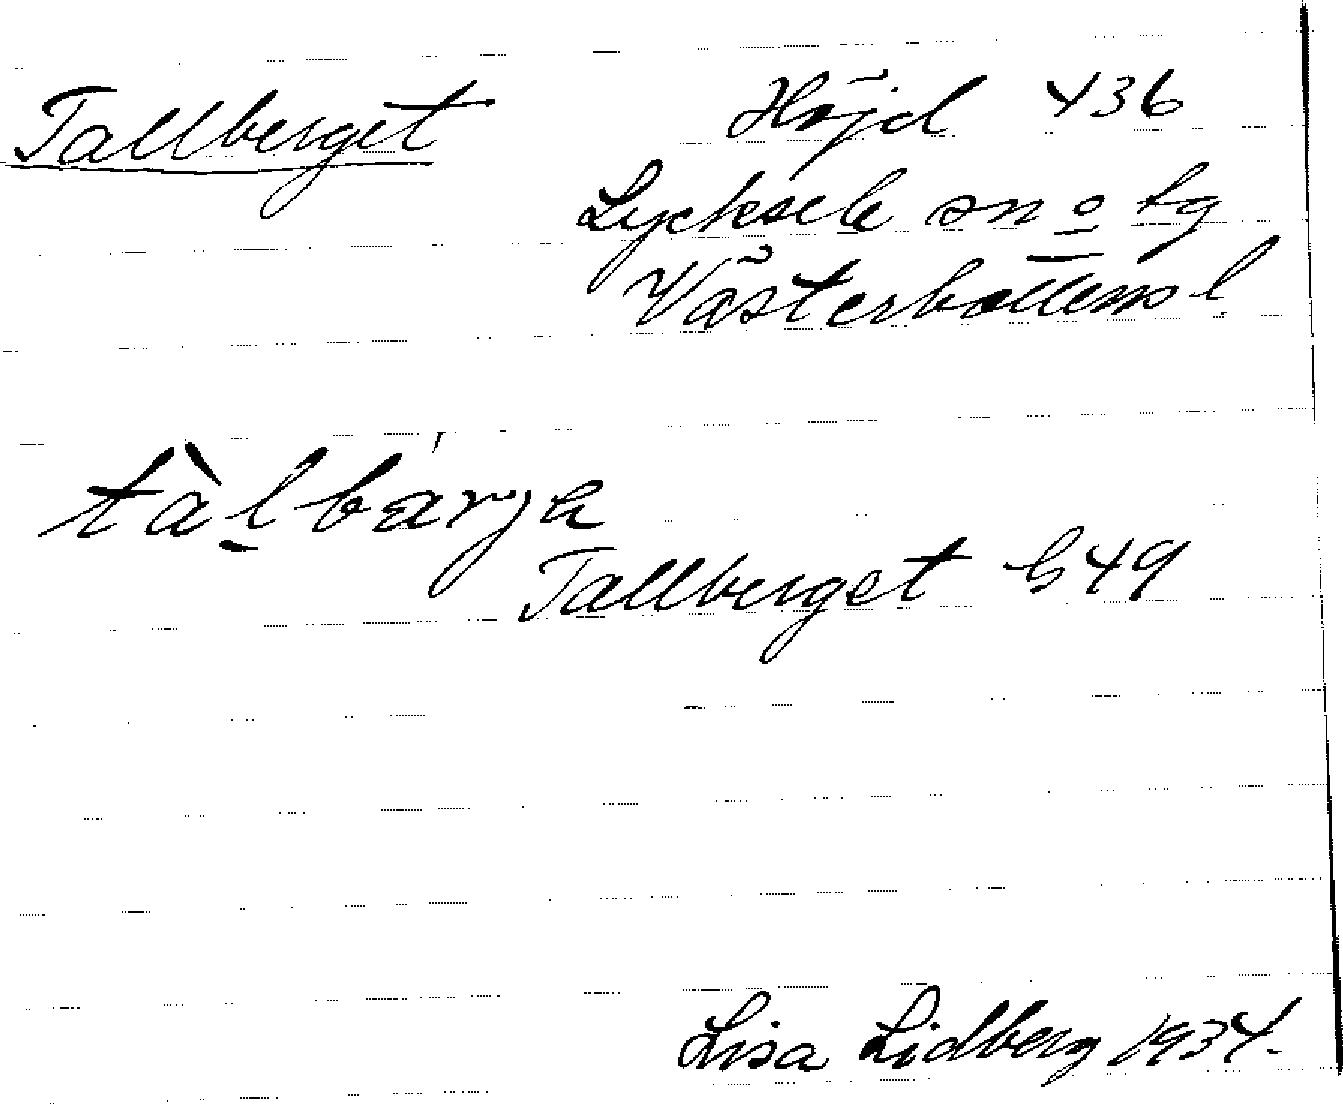 Tallberget Höjd 436
Lycksele sn o tg
Västerbottens l.
tàl̠bárjɑ
Tallberget G49
Lisa Lidberg 1934.